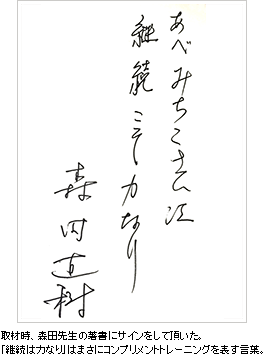 あべみちこさん江
継続こそ力なり
森田直樹
取材時、森田先生の著書にサインをして頂いた。
「継続は力なり」はまさにコンプリメントトレーニングを表す言葉。